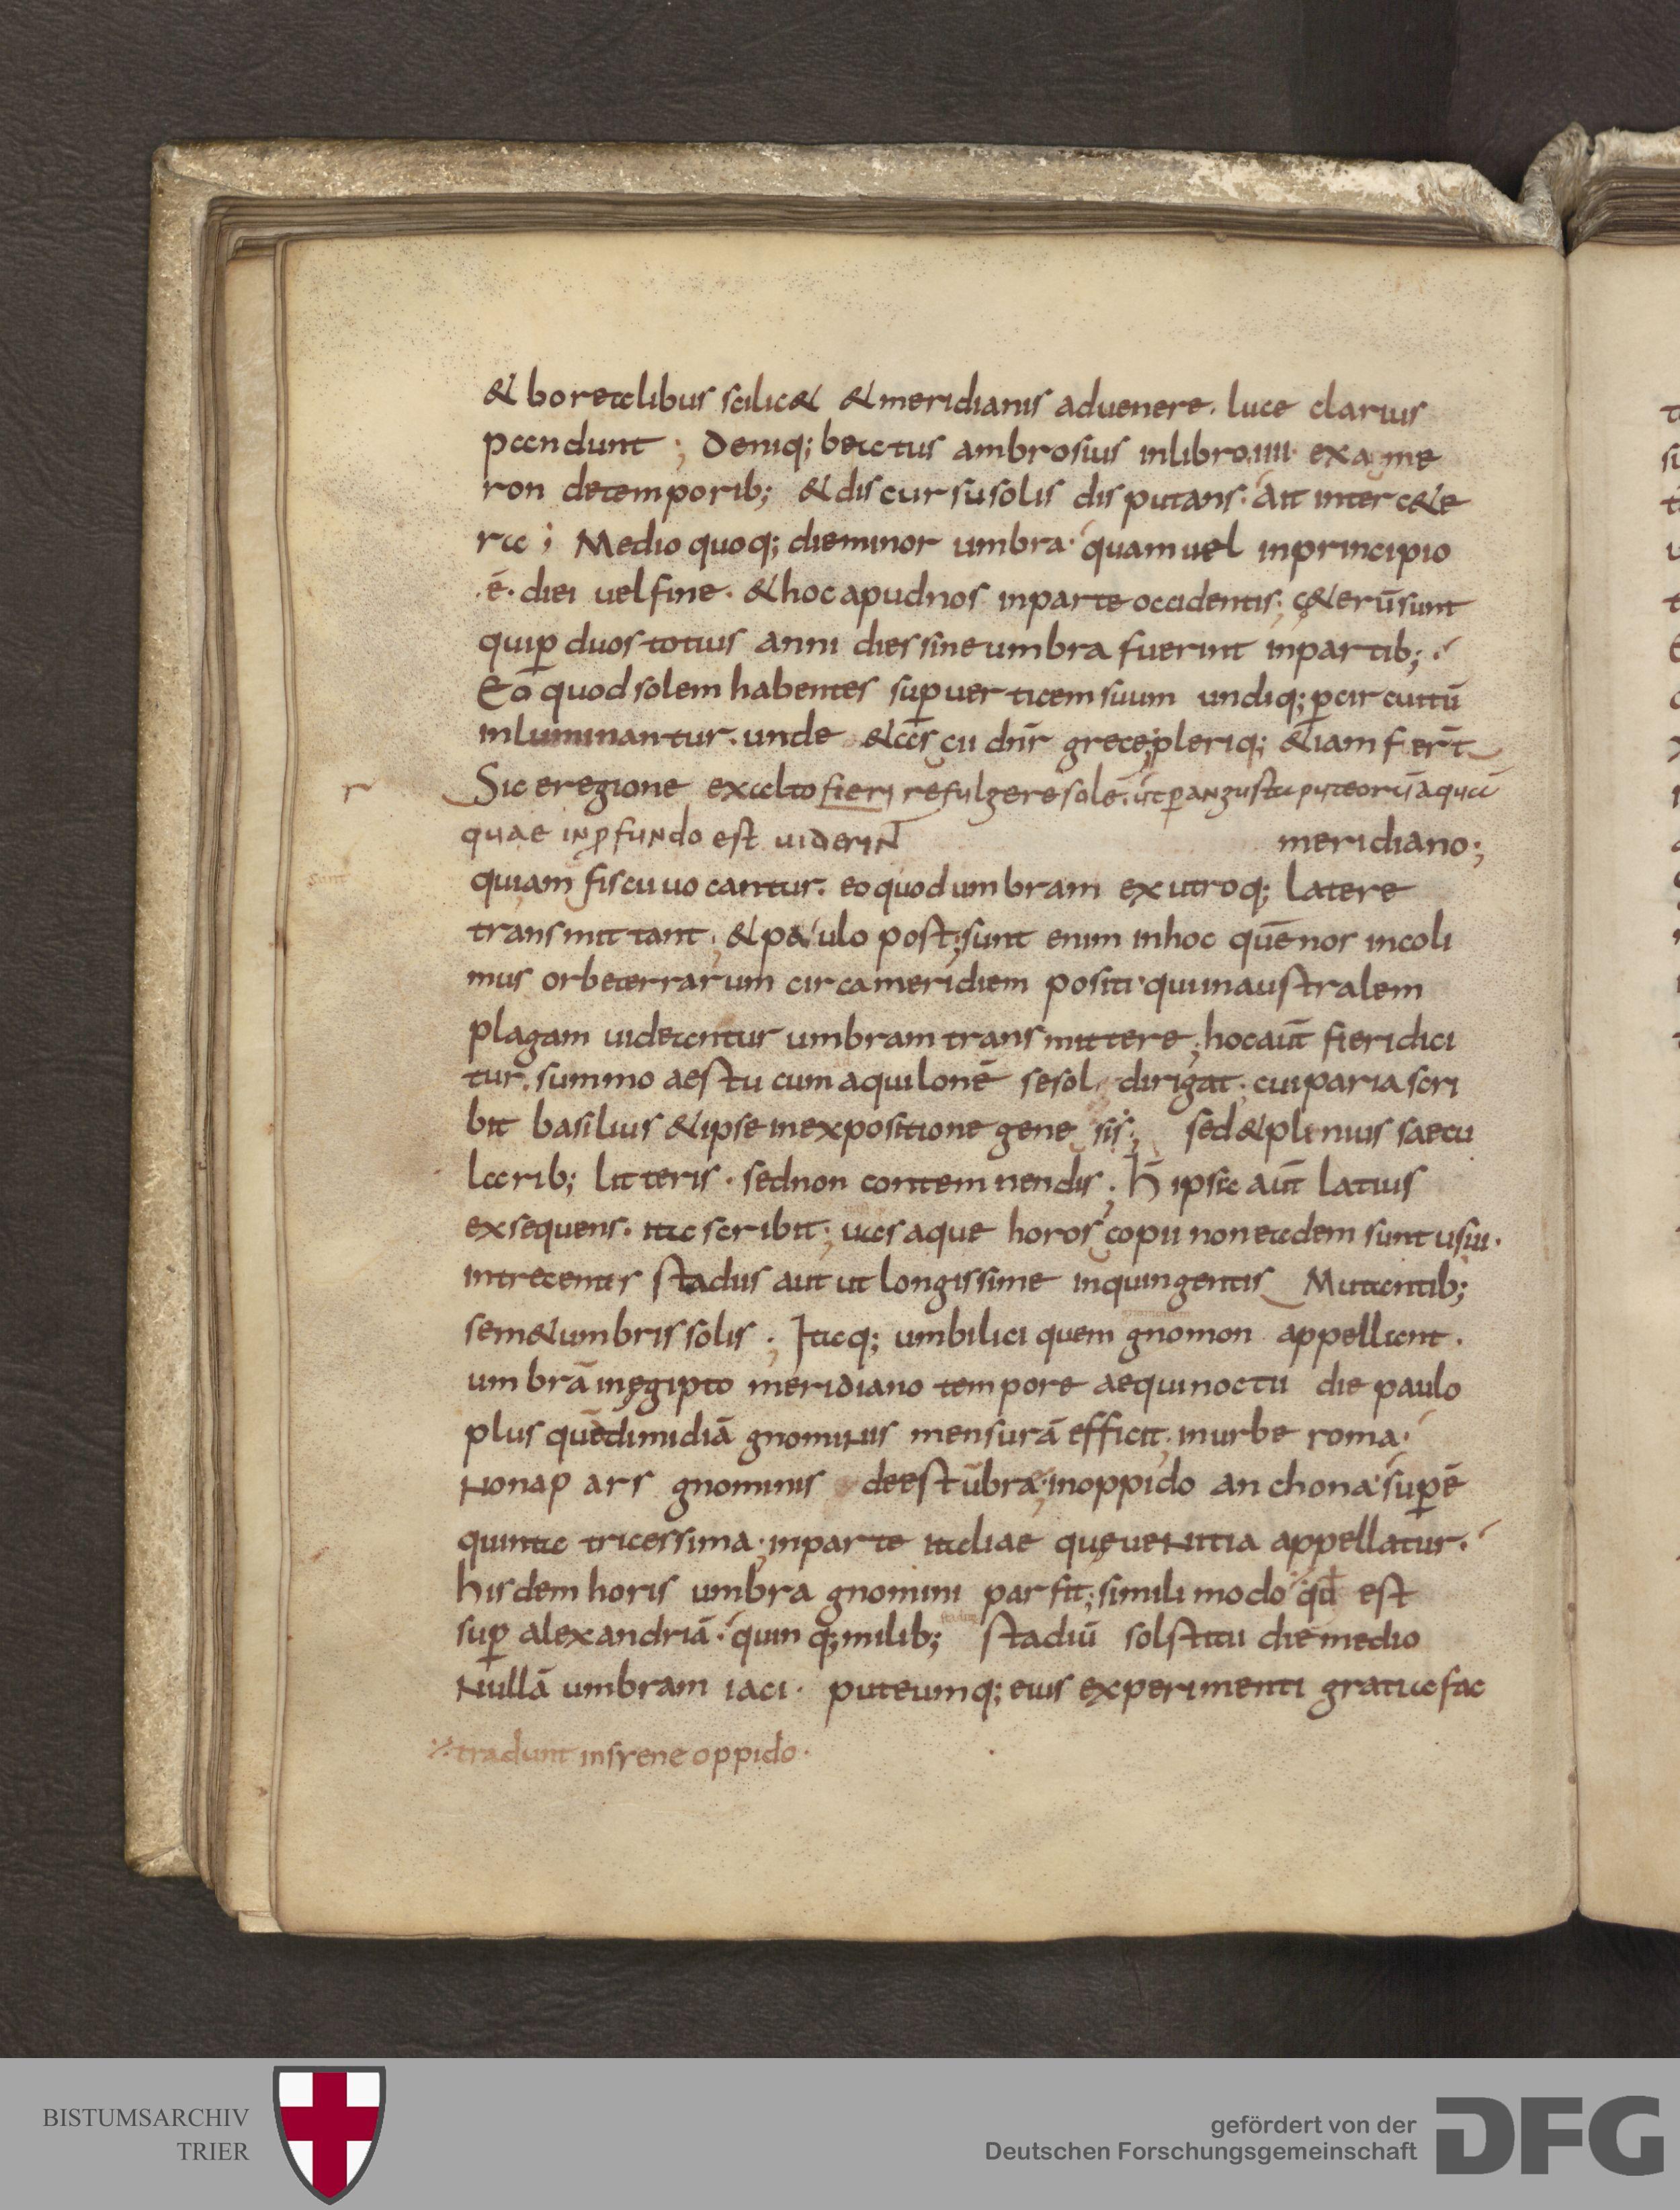 & borealibus scilic& & meridianis aduenere. luce clarius
pandunt; Deniq; beatus ambrosius inlibro.IIII. exa me
ron detemporib; & discursusolis disputans. Ait inter c&e
ra; Medio quoq; dieminor umbra. quam uel inprincipio
.ē. diei uel fine. & hoc apud nos inparte occidentis; c&erū sunt
quip̄ duos totius anni dies sine umbra fuerint inpartib;.
Eo quod solem habentes sup̄ uerticem suum undiq; p̄cir cuitū
inluminantur. unde & as cii dn̄r grece; pleriq; &iam fer̄t
Sic eregione exalto fieri refulgere solē. ut p̄ angusta puteorū aquā
quae inpfundo est uiderint meridiano;
quiam fiscii uocantur. eo quod umbram ex utroq; latere
transmittant; & paulo post; sunt enim inhoc quē nos incoli
mus orbeterrarum circameridiem positi quiinaustralem
plagam uideantur umbram transmittere; hocaūt fieri dici
tur. summo aestu cum aquilonē sesol dirigat; cui paria scri
bit basilius & ipse inexpositione gene sis; sed & plinius saecu
larib; litteris. sed non contemnendis; h̄ ipsa aūt latius
exsequens. ita scribit; uasaque horoscopii non eadem sunt usui.
intrecentis stadiis aut ut longissime inquingentis Mutantib;
sem& umbris solis; Itaq; umbilici quem gnomon appellant.
umbrā inęgipto meridiano tempore aequinoctii die paulo
plus quē dimidiā gnominis mensurā efficit; inurbe roma.
Nonap ars gnominis deest ūbrae; inoppido anchona sup̄ē
quinta tricessima; inparte italiae quę uenitia appellatur.
hisdem horis umbra gnomini par fit; simili modo qd̄ est
sup̄ alexandriā. quin q; milib; stadiū solstitii die medio
Nullā umbram iaci. puteumq; eius experimenti gratia fac
tradunt insyene oppido.
BISTUMSARCHIV
TRIER
gefördert von der
Deutschen Forschungsgemeinschaft
DFG